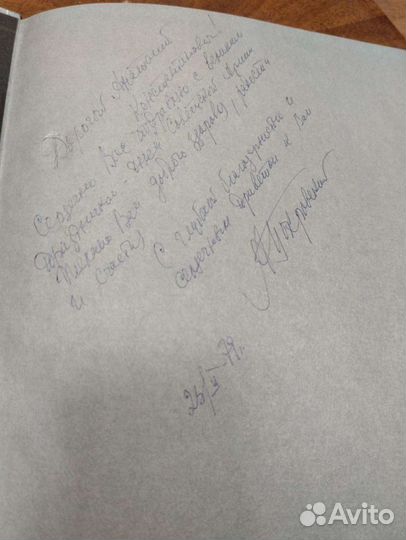 Дорогой Анатолий
Константинович!
Сердечно Вас поздравляю с великим
праздником – днем Советской Армии
Желаю Вам доброго здоровья, радости
и счастья,
С глубокой благодарностью и
сердечным приветом к Вам
АПокровский
79г.
Avito